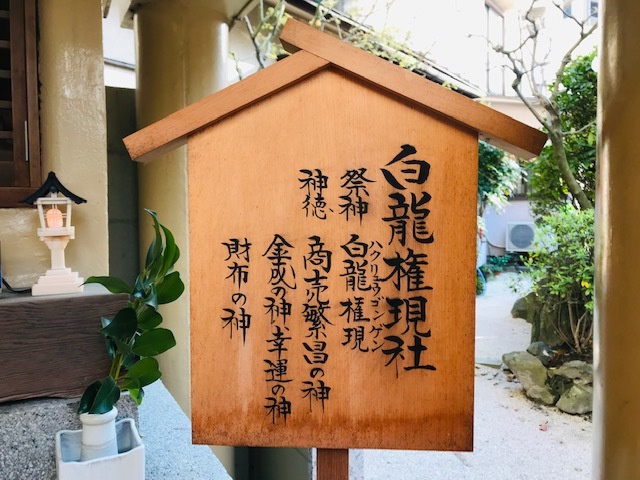 白龍権現社
祭神 白龍権現
ハクリュウゴンゲン
神徳 商売繁昌の神
金成の神、幸運の神
財布の神